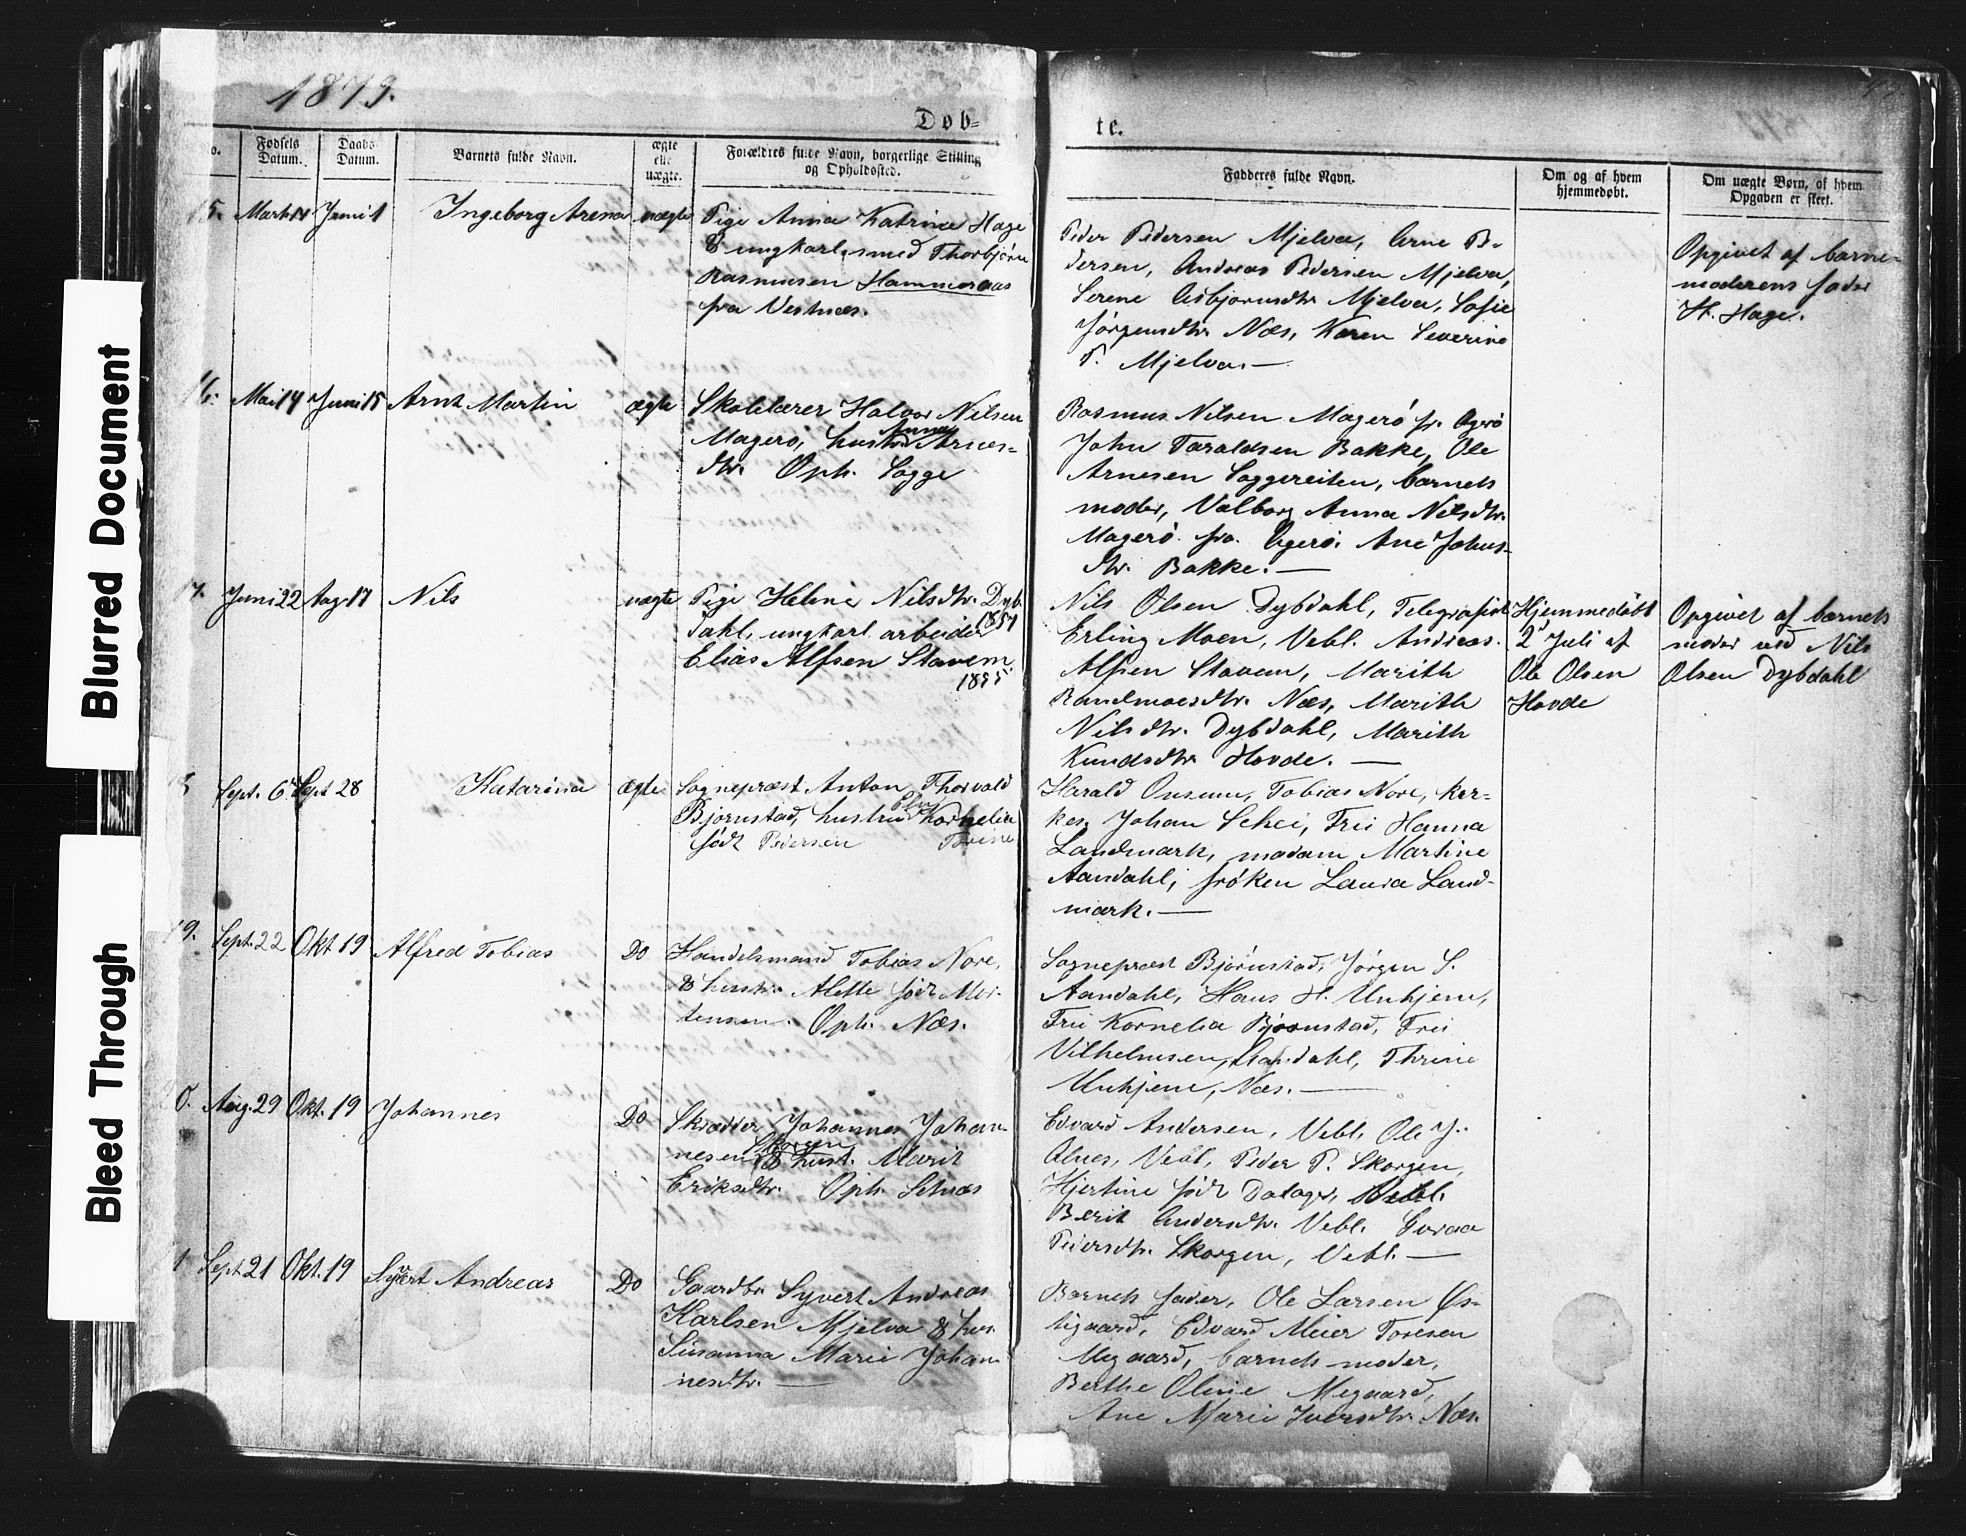 Blurred Document
Bleed Through
1879.
Døb-
te.
Fødsels Datum.
Daabs Datum.
Barnets fulde Navn.
ægte elle uægte.
Forældres fulde Navn, borgerlige Stilling og Opholdssted.
Fadderes fulde Navn.
Om og af hvem hjemmedøbt.
Om uægte Børn, af hvem Opgaven er skeet.
15. Marts 14 Juni 1 Ingeborg Arena uægte
Pige Anna Katrine Hage
& ungkarl smed Thorbjørn
Rasmusen Hammeraas
fra Vestnæs.
Peder Pedersen Mjelva, Arne Pe-
dersen, Andreas Pedersen Mjelva,
Serene Asbjørnsdtr. Mjelva, Sofie
Jørgensdtr. Næs, Karen Severine
P. Mjelva. —
Opgivet af barne-
moderens fader
H. Hage.
16. Mai 14 Juni 15 Arnt Martin ægte
Skolelærer Halvor Nilsen
Magerø, hustru Anna Arnes-
dtr. Oph. Sogge
Rasmus Nilsen Magerø fr. Agerø
John Taraldsen Bakke, Ole
Arnesen Soggereiten, barnets
moder, Valborg Anna Nilsdtr.
Magerø fra Agerø. Ane Johns-
dtr. Bakke. —
17. Juni 22 Aug. 17 Nils uægte
Pige Helene Nilsdtr. Dyb-
dahl, 1857 ungkarl arbeider
Elias Alfsen Stavem.
1855
Nils Olsen Dybdahl, Telegrafist
Erling Moen, Vebl. Andreas
Alfsen Stavem, Marith
Randmoesdtr. Næs, Marith
Nilsdtr. Dybdahl, Marith
Kundsdtr. Hovde. —
Hjemmedøbt
2d Juli af
Ole Olsen
Hovde
Opgivet af barnets
moder ved Nils
Olsen Dybdahl
Sept. 6 Sept 28 Katarina ægte
Sognepræst Anton Thorvald
Bjørnstad, hustru Kornelia
født Pedersen Trine
Harald Onsum, Tobias Nore, kir-
kes. Johan Schei, Fru Hanna
Landmark, madam Martine
Aandahl, frøken Laura Land-
mark. —
19. Sept. 22 Okt 19 Alfred Tobias Do
Handelsmand Tobias Nore,
& hustr. Alette født Mor-
tensen. Oph. Næs.
Sognepræst Bjørnstad, Jørgen S.
Aandahl, Hans H. Unhjem,
Fru Kornelia Bjørnstad, Fru
Vilhelmsen, Aandahl, Thrine
Unhjem, Næs. —
0. Aug. 29 Okt. 19 Johannes Do
Skrædder Johannes Johan-
nesen Skorgen & hust. Marit
Eriksdtr. Oph. Setnæs
Edvard Andersen, Vebl. Ole J.
Alnes, Vebl, Peder P. Skorgen,
Hjertine født Dalager, Vebl.
Berit Andersdtr. Vebl. Guraa
Pedersdtr. Skorgen, Vebl. —
1 Sept 21 Okt. 19 Syvert Andreas Do
Gaardbr. Syvert Andreas
Karlsen Mjelva & hus.
Susanna Marie Johan
nesdtr. —
Barnets fader, Ole Larsen Øs-
tigaard, Edvard Meier Toresen
Megaard, barnets moder,
Berthe Oline Megaard,
Ane Marie Iversdtr. Næs.